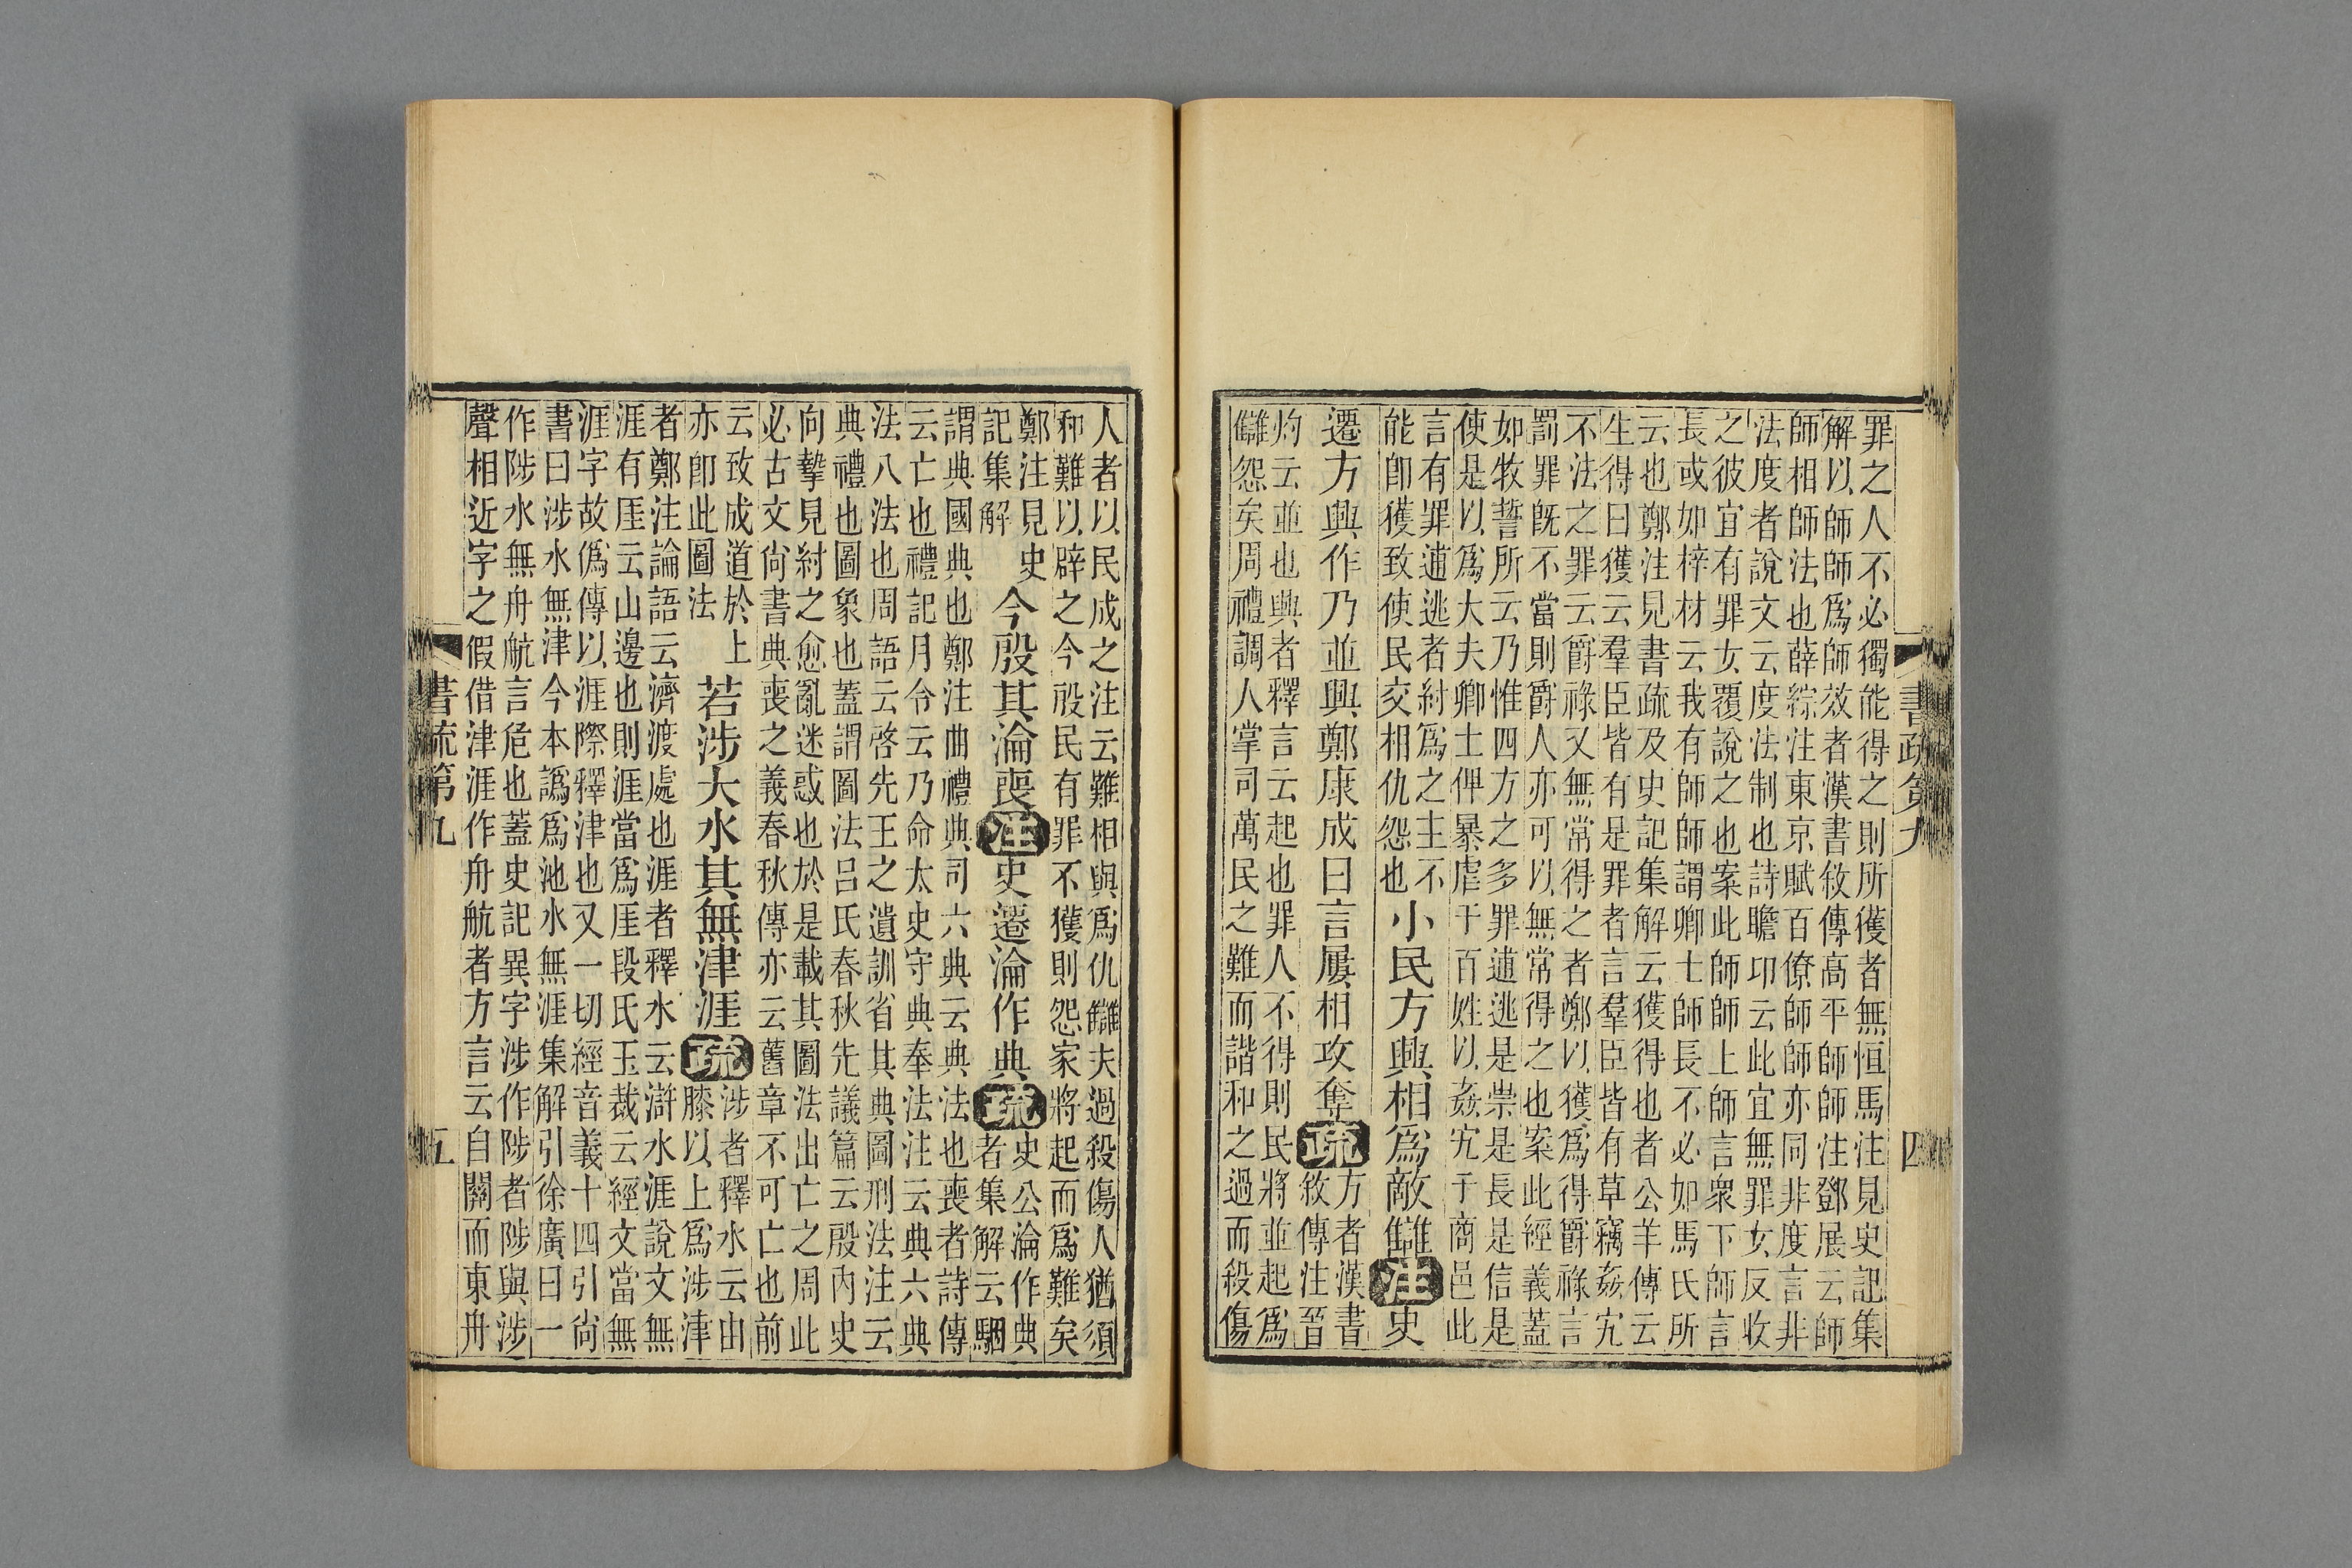 書疏第九
四
罪之人不必獨能得之則所獲者無恒馬注見史記集
解以師師爲師效者漢書敘傳高平師師注鄧展云師
師相師法也薛綜注東京賦百僚師師亦同非度言非
法度者說文云度法制也詩瞻卬云此宜無罪女反收
之彼宜有罪女覆說之也案此師師上師言衆下師言
長或如梓材云我有師師謂卿士師長不必如馬氏所
云也鄭注見書疏及史記集解云獲得也者公羊傳云
生得曰獲云羣臣皆有是罪者言羣臣皆有草竊姦宄
不法之罪云爵祿又無常得之者鄭以獲爲得爵祿言
罰罪旣不當則爵人亦可以無常得之也案此經義蓋
如牧誓所云乃惟四方之多罪逋逃是崇是長是信是
使是以爲大夫卿士俾暴虐于百姓以姦宄于商邑此
言有罪逋逃者紂爲之主不
能卽獲致使民交相仇怨也
小民方興相爲敵讎注史
遷方興作乃並興鄭康成曰言屢相攻奪疏
方者漢書
敘傳注晉
灼云並也興者釋言云起也罪人不得則民將並起爲
讎怨矣周禮調人掌司萬民之難而諧和之過而殺傷
人者以民成之注云難相與爲仇讎夫過殺傷人猶須
和難以辟之今殷民有罪不獲則怨家將起而爲難矣
鄭注見史
記集解
今殷其淪喪注史遷淪作典疏
史公淪作典
者集解云駰
謂典國典也鄭注曲禮典司六典云典法也喪者詩傳
云亡也禮記月令云乃命太史守典奉法注云典六典
法八法也周語云啓先王之遺訓省其典圖刑法注云
典禮也圖象也蓋謂圖法呂氏春秋先議篇云殷內史
向摯見紂之愈亂迷惑也於是載其圖法出亡之周此
必古文尚書典喪之義春秋傳亦云舊章不可亡也前
云致成道於上
亦卽此圖法
若涉大水其無津涯疏
涉者釋水云由
膝以上爲涉津
者鄭注論語云濟渡處也涯者釋水云滸水涯說文無
涯有厓云山邊也則涯當爲厓段氏玉裁云經文當無
涯字故僞傳以涯際釋津也又一切經音義十四引尚
書曰涉水無津今本譌爲池水無涯集解引徐廣曰一
作陟水無舟航言危也蓋史記異字涉作陟者陟與涉
聲相近字之假借津涯作舟航者方言云自關而東舟
書疏第九
五